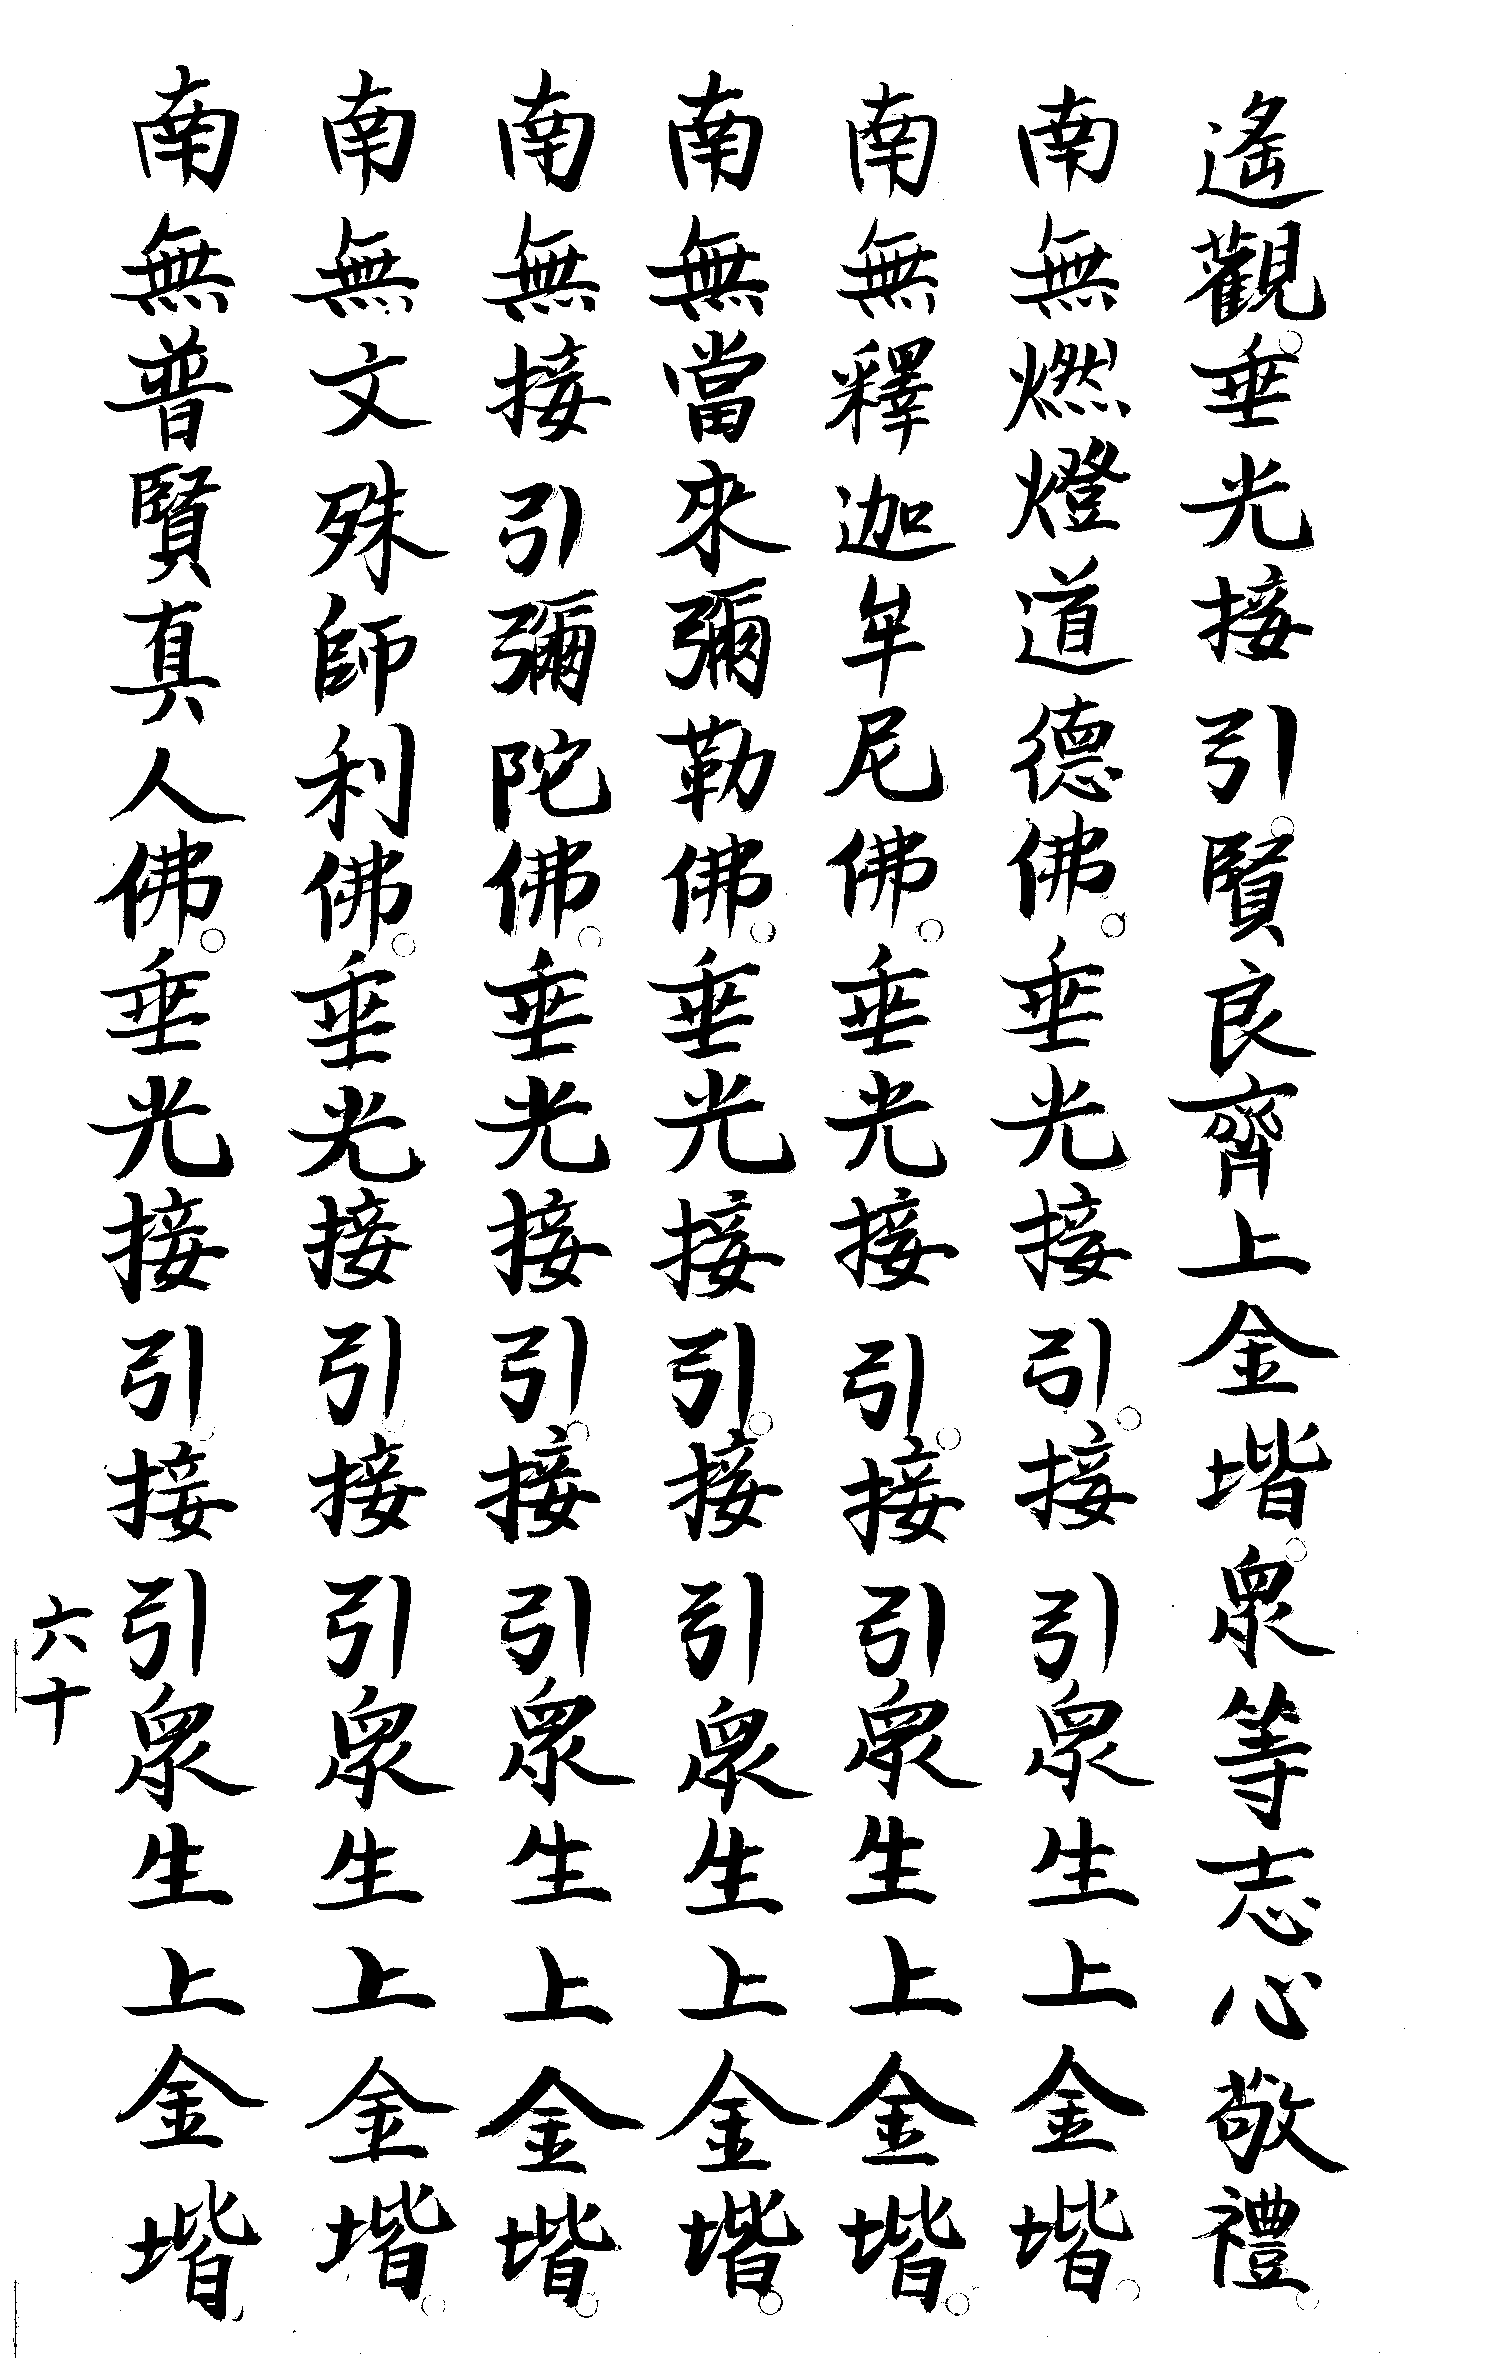 遙觀。垂光接引。賢良齊上金堦。衆等志心敬禮。
南無燃燈道德佛。垂光接引。接引衆生上金堦。
南無釋迦牟尼佛。垂光接引。接引衆生上金堦。
南無當來彌勒佛。垂光接引。接引衆生上金堦。
南無接引彌陀佛。垂光接引。接引衆生上金堦。
南無文殊師利佛。垂光接引。接引衆生上金堦。
南無普賢真人佛。垂光接引。接引衆生上金堦。
六十